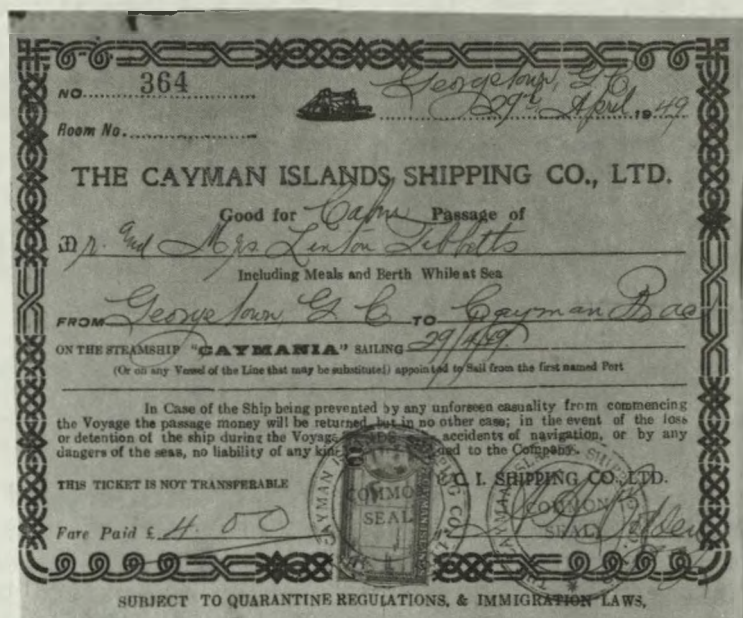 NO. 364
Georgetown, G C
29th April 1949
Room No.
THE CAYMAN ISLANDS SHIPPING CO., LTD.
Good for Cabin Passage of
Mr. and Mrs Linton Tibbetts
Including Meals and Berth While at Sea
FROM Georgetown, G C TO Cayman Brac
ON THE STEAMSHIP "CAYMANIA" SAILING 29/4/49.
(Or on any Vessel of the Line that may be substituted) appointed to Sail from the first named Port
In Case of the Ship being prevented by any unforseen casuality from commencing
the Voyage the passage money will be returned, but in no other case; in the event of the loss
or detention of the ship during the Voyage accidents of navigation, or by any
dangers of the seas, no liability of any kind to the Company.
THIS TICKET IS NOT TRANSFERABLE
C. I. SHIPPING CO., LTD.
COMMON
SEAL
THE CAYMAN ISLANDS SHIPPING CO. LTD.
COMMON
SEAL
THE CAYMAN ISLANDS SHIPPING CO. LTD.
Fare Paid £ 4. 00
SUBJECT TO QUARANTINE REGULATIONS, & IMMIGRATION LAWS,